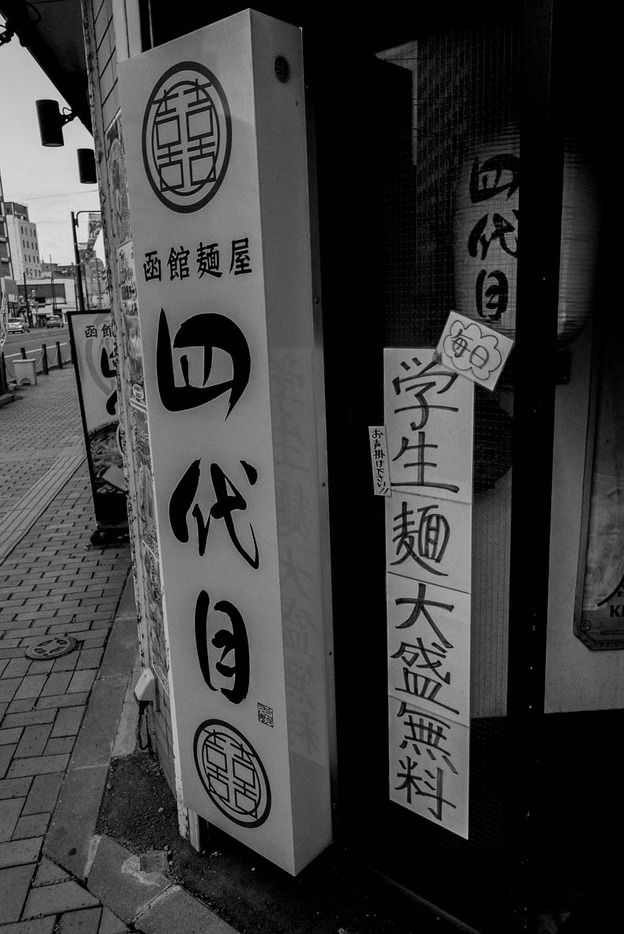 函館麺屋
四代目
四代目
毎日
学生麺大盛無料
お声掛け下さい!!
函館